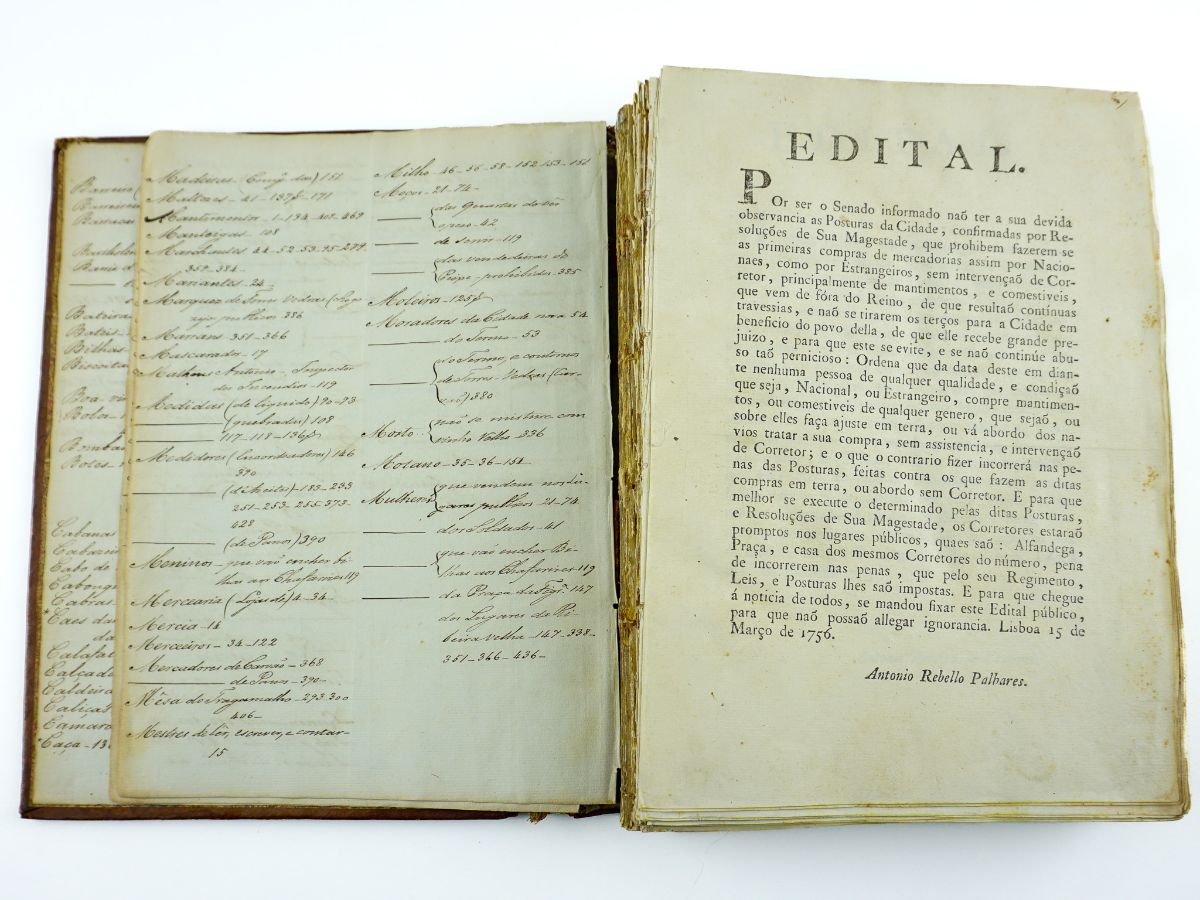 Barreiro
Barqueiros
Barracas
Bartholom
Bateiras
Bateis
Bilhas
Biscouta
Boa vis
Bola
Bomba
Botes
Cabanas
Cabo de
Cabras
Caes da
Calafat
Calçada
Caldeira
Caliças
Camaro
Caça - 13
Madeiras 151
Maltezes - 41 - 137 - 171
Mantimentos - 1 - 194 - 408 - 469
Manteigas - 108
Marchantes 44 - 52 - 53 - 95 - 279
359 - 384
Mariantes - 24
Marquez de Torres Vedras
386
351 - 366
Mascarados - 17
Matheus Antonio - Inspector
dos Incendios - 119
Medidas (de liquido) 90 - 93
(quebradas) 108
117 - 118 - 136
Medidores (Encordoadores) 146
390
(d'Azeite) - 183 - 293
251 - 253 - 255 - 373
428
(de Panos) 390
Meninos - que vão encher bi-
lhas aos Chafarizes 119
Mercearia (Lojas de) 4 - 34
Mercia - 14
Merceeiros - 34 - 122
Mercadores de Carvão - 368
de Panos - 390
Mêsa do Tragamalho - 293 - 300
406
Mestres de lêr, escrever, e contar
15
Milho - 46 - 56 - 58 - 152 - 153 - 151
Moços - 21 - 74
das Quartas do Ter
42
de servir - 119
das vendedeiras de
Peixe prohibidos - 385
Moleiros - 125
Moradores da Cidade nova 54
do Termo - 53
do Termo, e contornos
de Torres Vedras
380
Mosto não se misture com
vinho velho - 336
Motano - 35 - 36 - 154
Mulheres que vendem nos lu-
gares publicos - 21 - 74
dos Soldados - 41
que vão encher Bi-
lhas aos Chafarizes - 119
da Praça da Figr.ª 147
dos Lugares da Ri-
beira velha - 147 - 338
351 - 366 - 436
EDITAL.
POr ser o Senado informado naõ ter a sua devida
observancia as Posturas da Cidade, confirmadas por Re-
soluções de Sua Magestade, que prohibem fazerem-se
as primeiras compras de mercadorias assim por Nacio-
naes, como por Estrangeiros, sem intervençaõ de Cor-
retor, principalmente de mantimentos, e comestiveis,
que vem de fóra do Reino, de que resultaõ contínuas
travessias, e naõ se tirarem os terços para a Cidade em
beneficio do povo della, de que elle recebe grande pre-
juizo, e para que este se evite, e se naõ continúe abu-
so taõ pernicioso: Ordena que da data deste em dian-
te nenhuma pessoa de qualquer qualidade, e condiçaõ
que seja, Nacional, ou Estrangeiro, compre mantimen-
tos, ou comestiveis de qualquer genero, que sejaõ, ou
sobre elles faça ajuste em terra, ou vá abordo dos na-
vios tratar a sua compra, sem assistencia, e intervençaõ
de Corretor; e o que o contrario fizer incorrerá nas pe-
nas das Posturas, feitas contra os que fazem as ditas
compras em terra, ou abordo sem Corretor. E para que
melhor se execute o determinado pelas ditas Posturas,
e Resoluções de Sua Magestade, os Corretores estaraõ
promptos nos lugares públicos, quaes saõ: Alfandega,
Praça, e casa dos mesmos Corretores do número, pena
de incorrerem nas penas, que pelo seu Regimento,
Leis, e Posturas lhes saõ impostas. E para que chegue
á noticia de todos, se mandou fixar este Edital público,
para que naõ possaõ allegar ignorancia. Lisboa 15 de
Março de 1756.
Antonio Rebello Palhares.